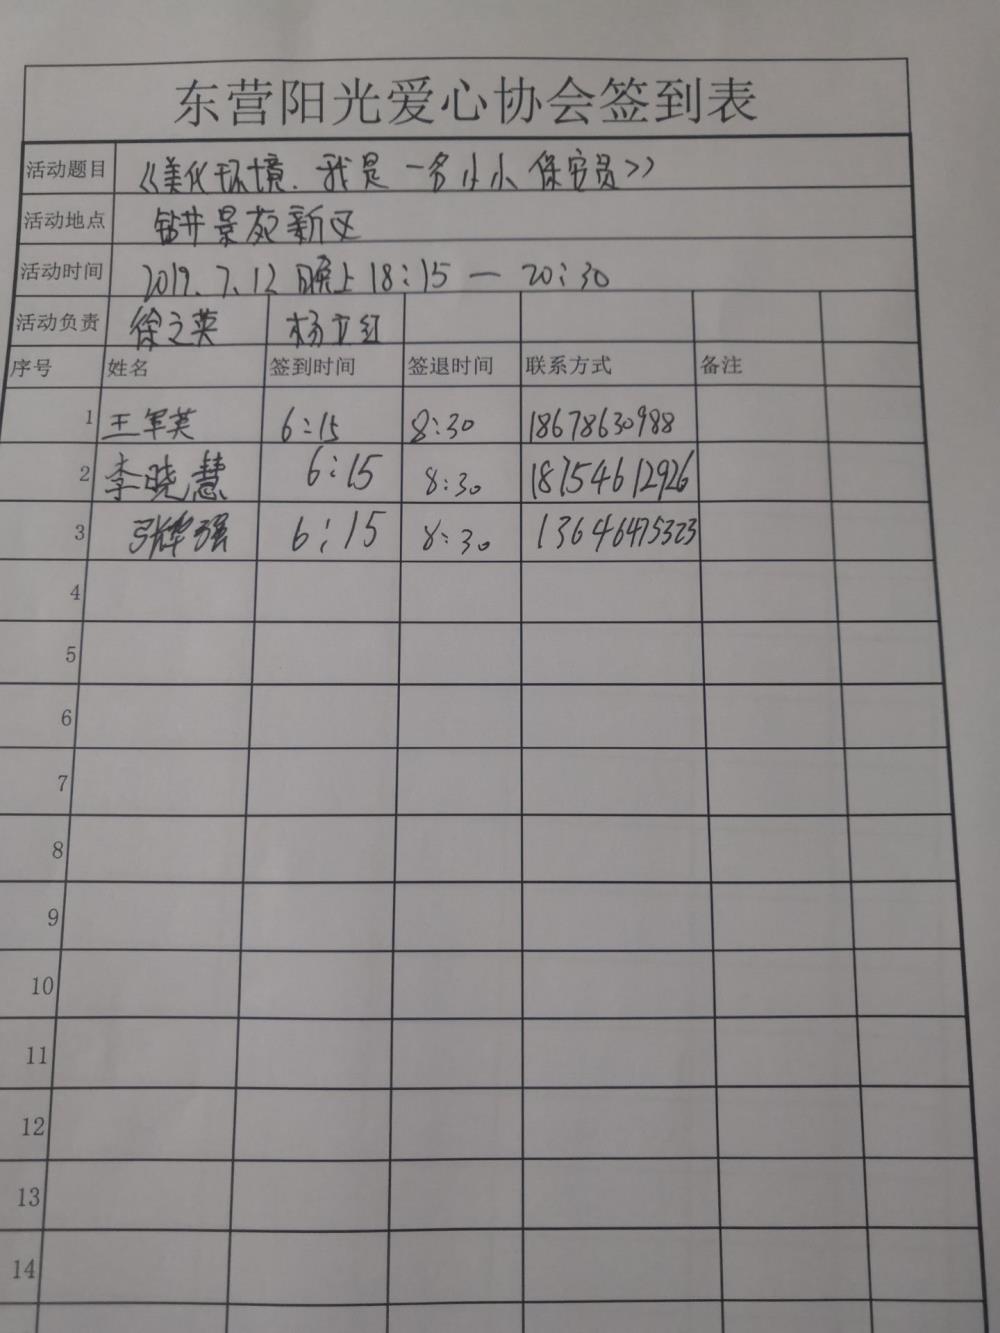 东营阳光爱心协会签到表
活动题目 《美化环境.我是一名小小保安员》
活动地点 钻井景苑新区
活动时间 2019.7.12 晚上18:15—20:30
活动负责 徐之英 杨立红
序号 姓名 签到时间 签退时间 联系方式 备注
1 王军英 6:15 8:30 18678630988
2 李晓慧 6:15 8:30 18754612926
3 张辉强 6:15 8:30 13646475323
4
5
6
7
8
9
10
11
12
13
14